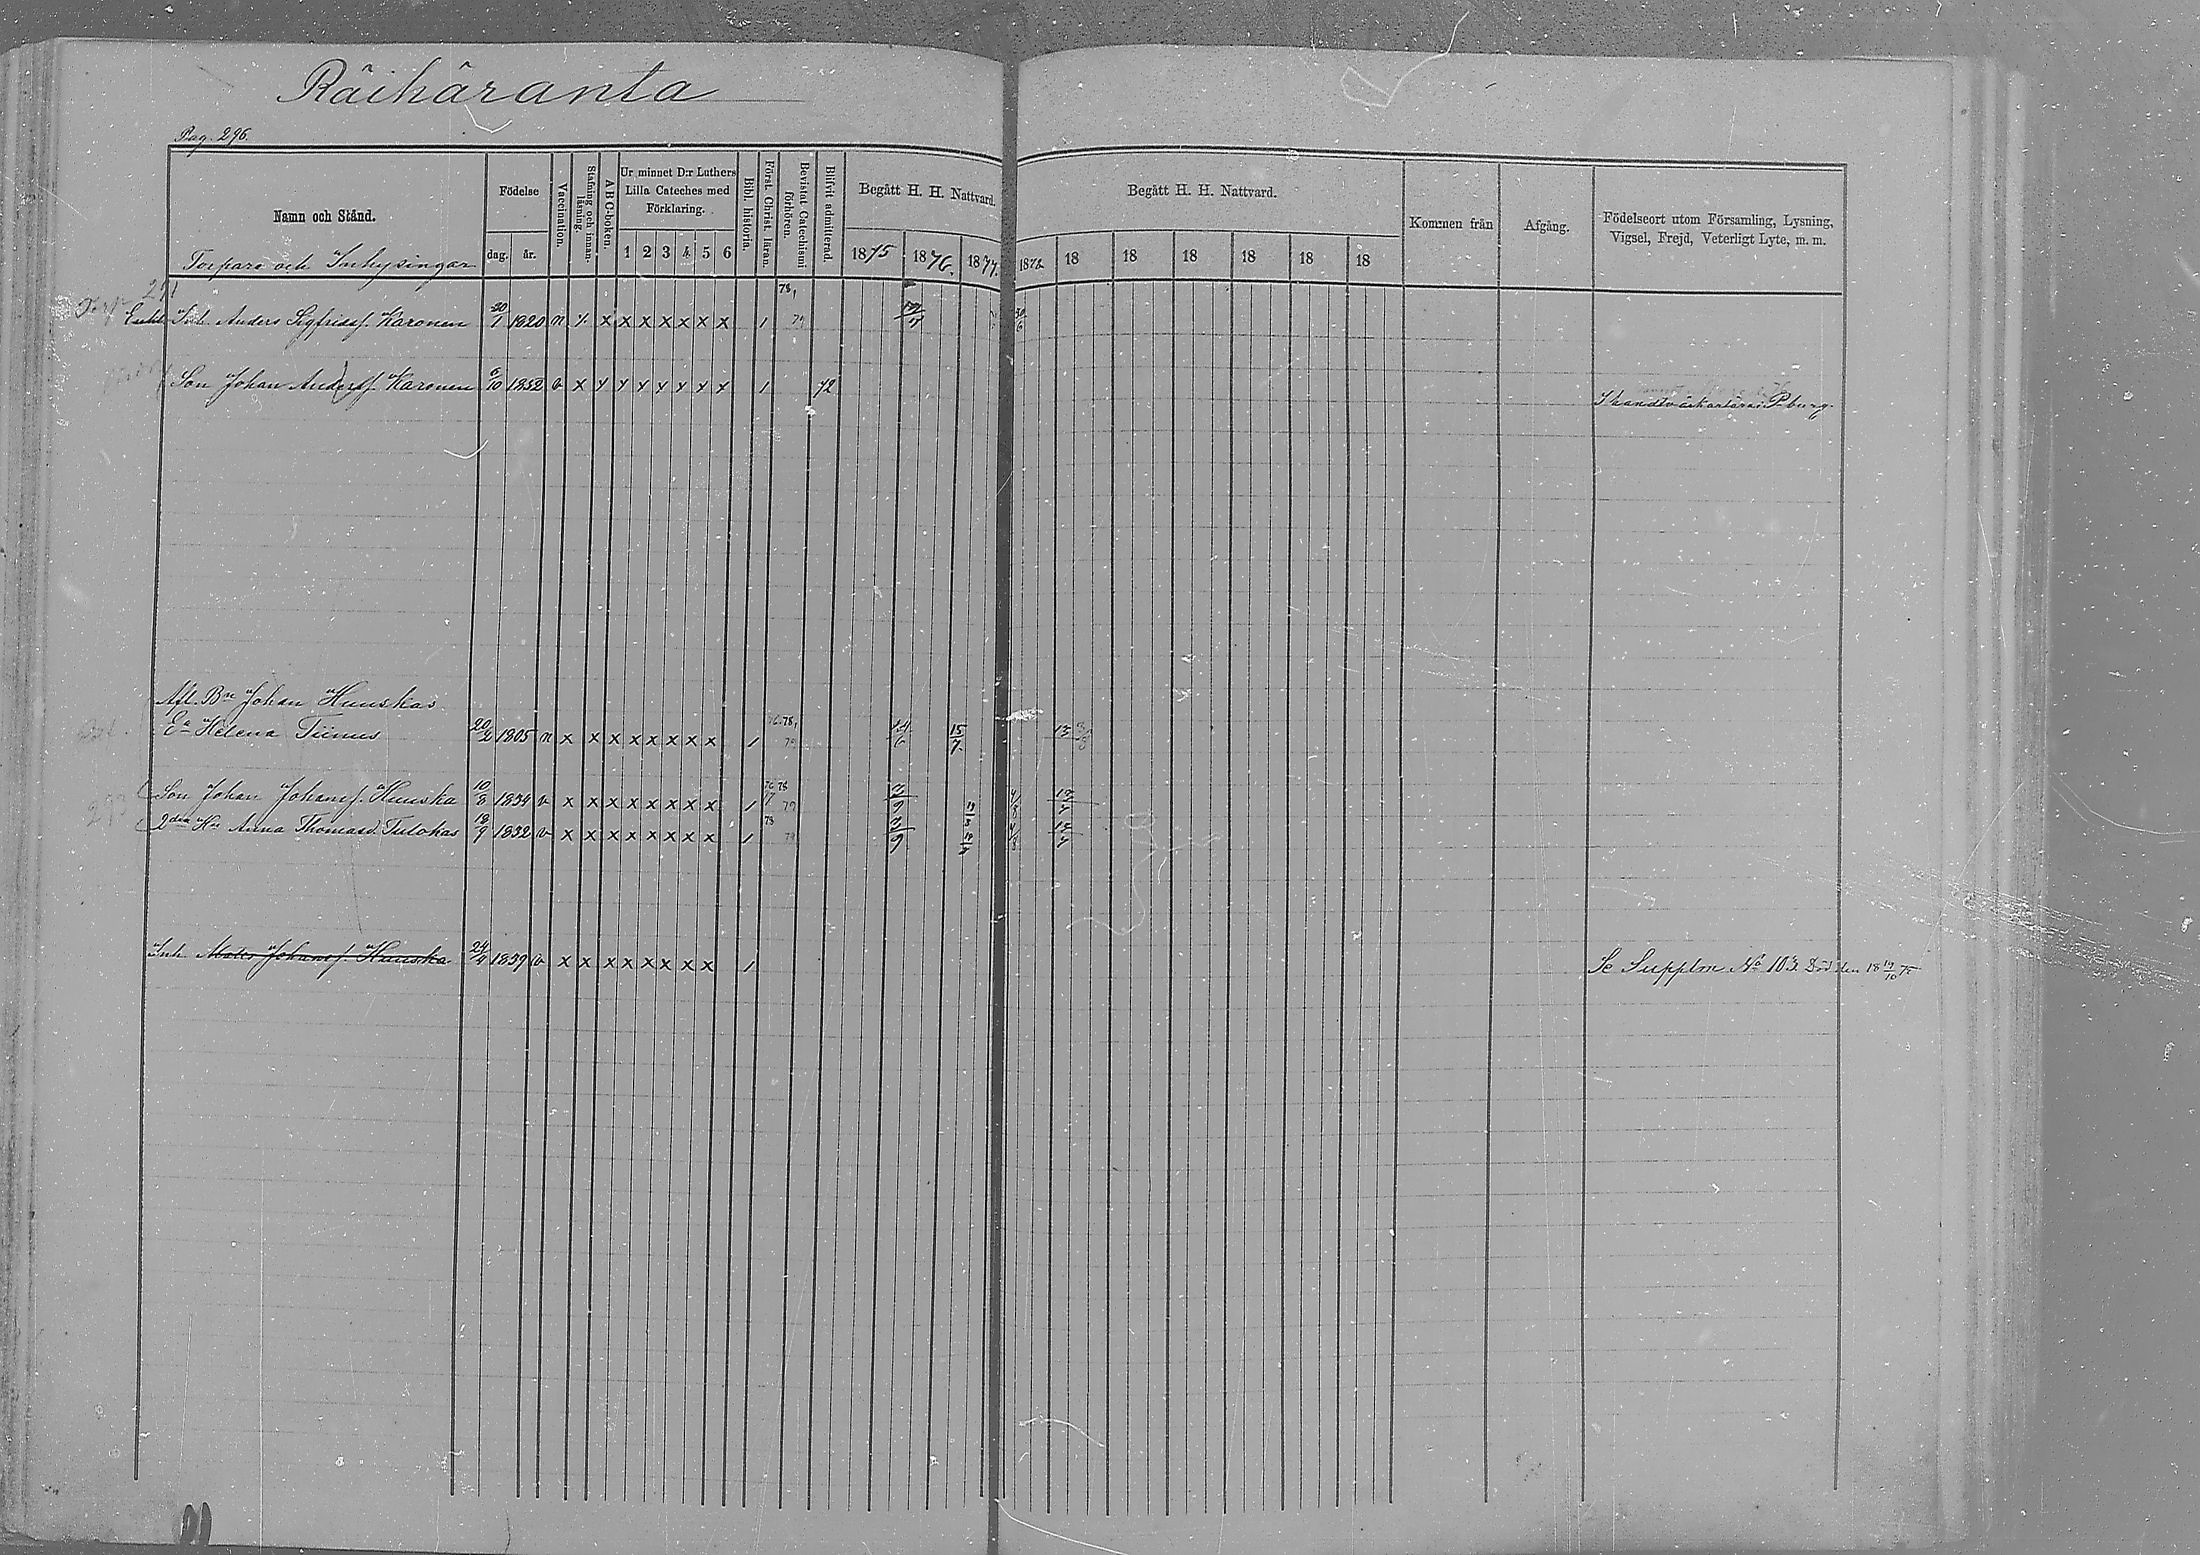 Räihäranta
Pag. 296.
Namn och Stånd.
Födelse
dag.
år.
Vaccination.
Stafning och innan-läsning.
ABC-boken.
Ur minnet D:r Luthers Lilla Cateches med Förklaring.
1 2 3 4 5 6
Bibl. historia.
Först. Christ. läran.
Bevistat Catechismi förhören.
Blifvit admitterad
Begått H. H. Nattvard.
1875 1876. 1877.
Begått H. H. Nattvard.
1878 18 18 18 18 18 18
Kommen från
Afgång.
Födelseort utom Församling, Lysning, Vigsel, Frejd, Veterligt Lyte, m. m.
Torpare och Inhysingar
291
Enkl. Inh. Anders Sigfridsf. Karonen 20/1 1820 n x x x x x x x x 1 78, 79 30/6
Son Johan Andersf. Karonen 6/10 1852 v x x x x x x x x 1 72 P.burg.
Afl. Bn Johan Huuskas
Ea Helena Tiinus 20/2 1805 n x x x x x x x x x 1 76. 78, 79 15/7. 13
Son Johan Johansf. Huuska 10/8 1834 v x x x x x x x x x 1 76 78 79
2dra Hu Anna Thomasd. Tulokas 18/9 1832 v x x x x x x x x x 1 78
Inh Mats Johansf. Huuska 24/4 1839 v x x x x x x x x x 1 Se Supplm No 103. Död den 18 19/10 75